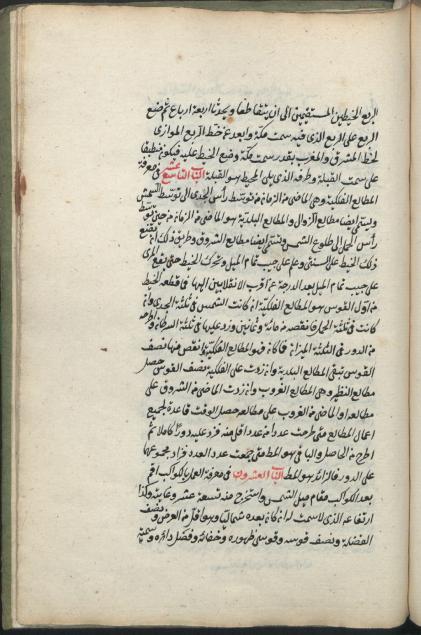 الربع الخيطين المستقيمين الى ان يتقاطعا ويحدثا اربعة ارباع ثم ضع
الربع على الربع الذى فيه سمت مكة وابعد عن خط الربع الموازى
لخط المشرق والمغرب بقدر سمت مكة وضع الخيط عليه فيكون منطبقا
على سمت القبلة وطرفه الذى يلى المحيط هو القبلة الباب التاسع عشر فى معرفة
المطالع الفلكية وهى الماضى من الزمان من توسط رأس الجدى الى توسط الشمس
ويسمى ايضا مطالع الزوال والمطالع البلدية هو الماضى من الزمان من حين توسط
رأس الجدى الى طلوع الشمس ويسمى ايضا مطالع الشروق وطريق ذلك ان تضع
ذلك الخيط على الستينى وعلم على جيب تمام الميل وحرك الخيط حتى يقع المرى
على جيب تمام بعد الدرجة عن اقرب الانقلابين اليها فما قطعه الخيط
من اول القوس هو المطالع الفلكية ان كانت الشمس فى ثلثة الجدى وان
كانت فى ثلثة الحمل فانقصه من مائة وثمانين وزد عليها فى ثلثة السرطان واطرحه
من الدور فى الثلثة الميزان فما كان فهو المطالع الفلكية وانقص منها نصف
القوس تبقى المطالع البلدية وان زدت على الفلكية نصف القوس حصل
مطالع النظير وهى المطالع الغروب وان زدت الماضى من الشروق على
مطالعه او الماضى من الغروب على مطالعه حصل الوقت قاعدة لجميع
اعمال المطالع متى طرحت عددا من عدد اقل منه فزد عليه دورا كاملا ثم
اطرح من الحاصل والباقى هو المط متى جمعت عددا لعدد فزاد مجموعهما
على الدور فالزائد هو المط الباب العشرون فى معرفة العمل بالكواكب اقم
بعد الكواكب مقام ميل الشمس واستخرج منه سعة عشر وغايته وكذا
ارتفاعه الذى لا سمت له ان كان بعده شماليا وهو اقل من العرض ونصف
الفضلة ونصف قوسه وقوسى ظهوره وخفائه وفضل دائره وسمته